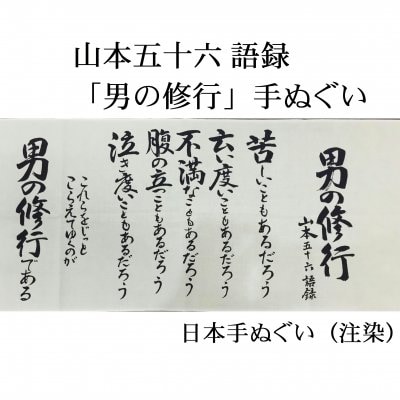 山本五十六 語録
「男の修行」手ぬぐい
男の修行
山本五十六 語録
苦しいこともあるだろう
云い度いこともあるだろう
不満なこともあるだろう
腹の立つこともあるだろう
泣き度いこともあるだろう
これらをじっと
こらえてゆくのが
男の修行である
日本手ぬぐい（注染）